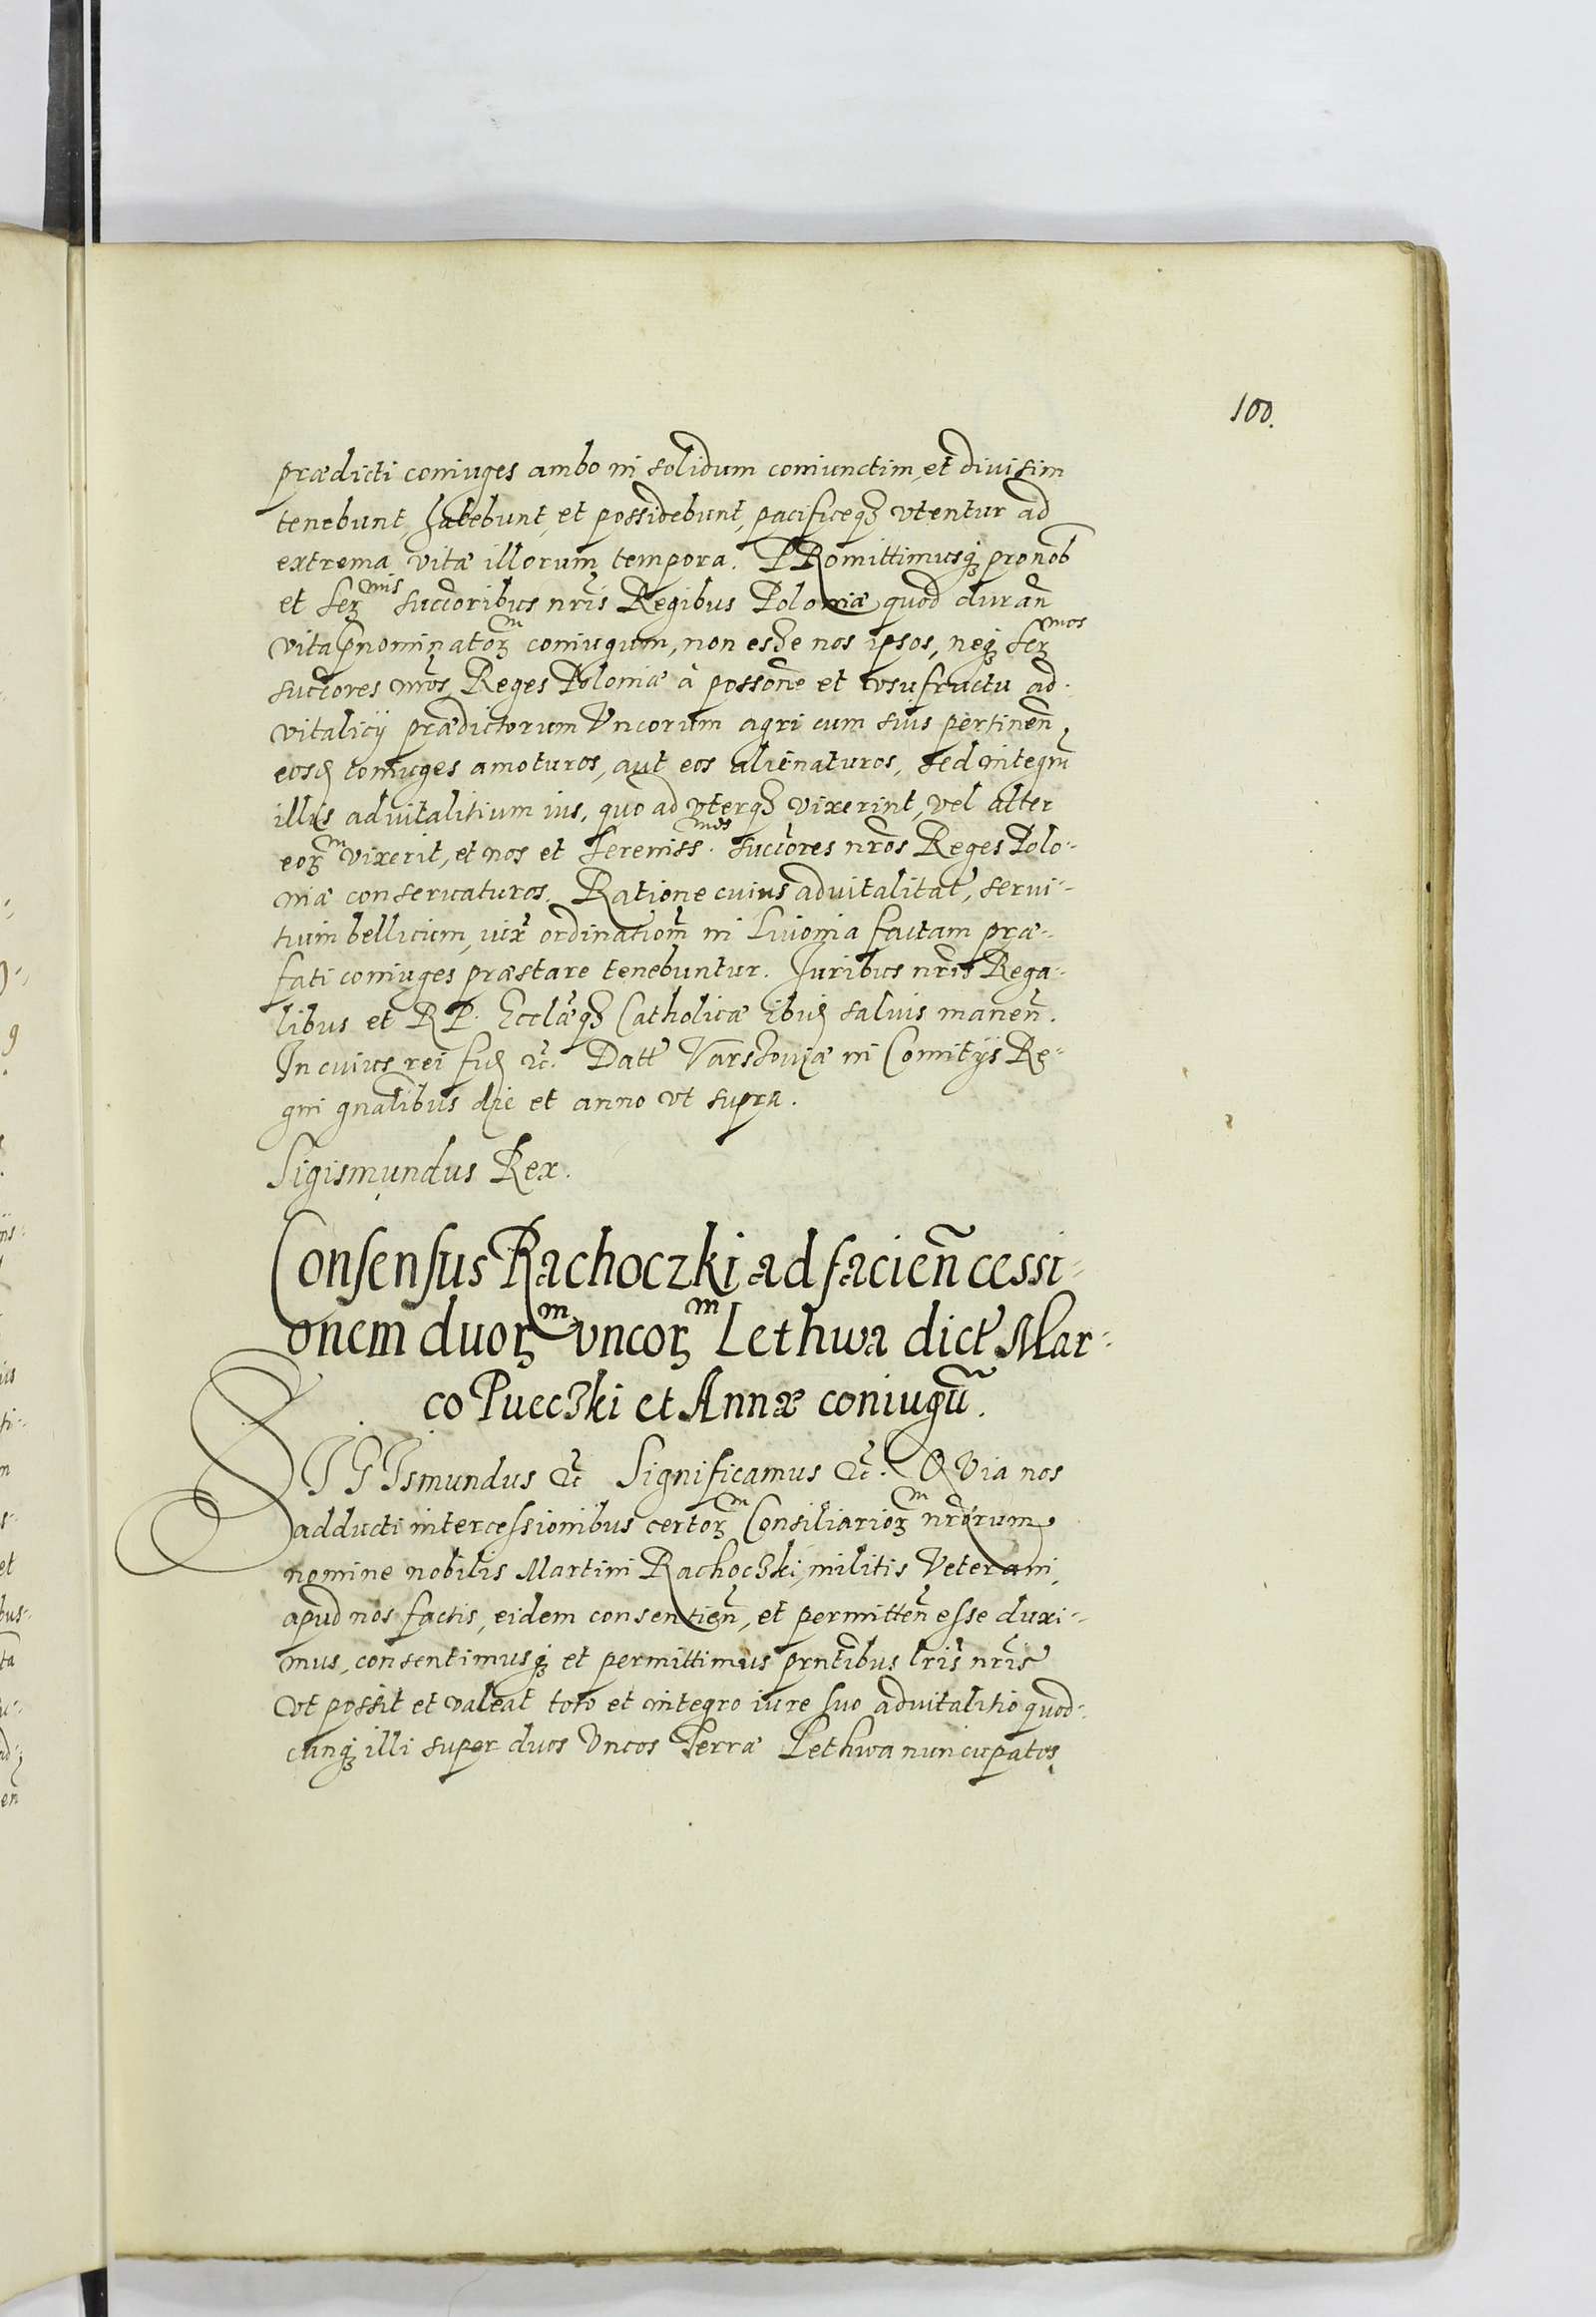 100.
prædicti coniuges ambo in solidum coniunctim, et divisim
tenebunt, habebunt, et possidebunt, pacificeqȝ vtentur ad
extrema vitæ illorum tempora. PRomittimusqȝ pro nob̃
et Serꝫmis succoribus nr̃is Regibus Poloniæ, quod duran̄
vita p̃nominatorꝫm coniugum, non esse nos ipsos, neqȝ Serꝫmos
succores nr̃os Reges Poloniæ à possone et vsufructu ad-
vitalicij prædictorum Vncorum agri cum suis pertinen̄,
eosđ coniuges amoturos, aut eos alienaturos, sed integrũ
illis advitalitium ius, quo ad vterqȝ vixerint, vel alter
eorꝫm vixerit, et nos et Sereniss.mos succores nr̃os Reges Polo-
niæ conservaturos. Ratione cuius advitalitat̃, servi-
tium bellicum, iux̃ ordination̄ in Livonia factam præ-
fati coniuges præstare tenebuntur. Juribus nr̃is Rega-
libus et RP. Eccl̃æqȝ Catholicæ ibiđ salvis manen̄.
In cuius rei fiđ ?c̃. Datt Varshoviæ in Comitijs Re-
gni gñalibus die et anno vt supra.
Sigismundus Rex.
Consensus Rachoczki ad facien̄ cessi-
onem duorꝫm vncorꝫm Lethwa dict̃ Mar-
co Pueczki et Annæ coniugũ.
SIGIsmundus &c̃ Significamus &c̃. QVia nos
adducti intercessionibus certorꝫm Consiliariorꝫm nr̃orum
nomine nobilis Martini Rachoczki, militis Veterani,
apud nos factis, eidem consentien̄, et permitten̄ esse duxi-
mus, consentimusqȝ et permittimus prñtibus lr̃is nr̃is
vt possit et valeat toto et integro iure suo advitalitio quod-
cunqȝ illi super duos Vncos Terræ Lethwa nuncupatos,